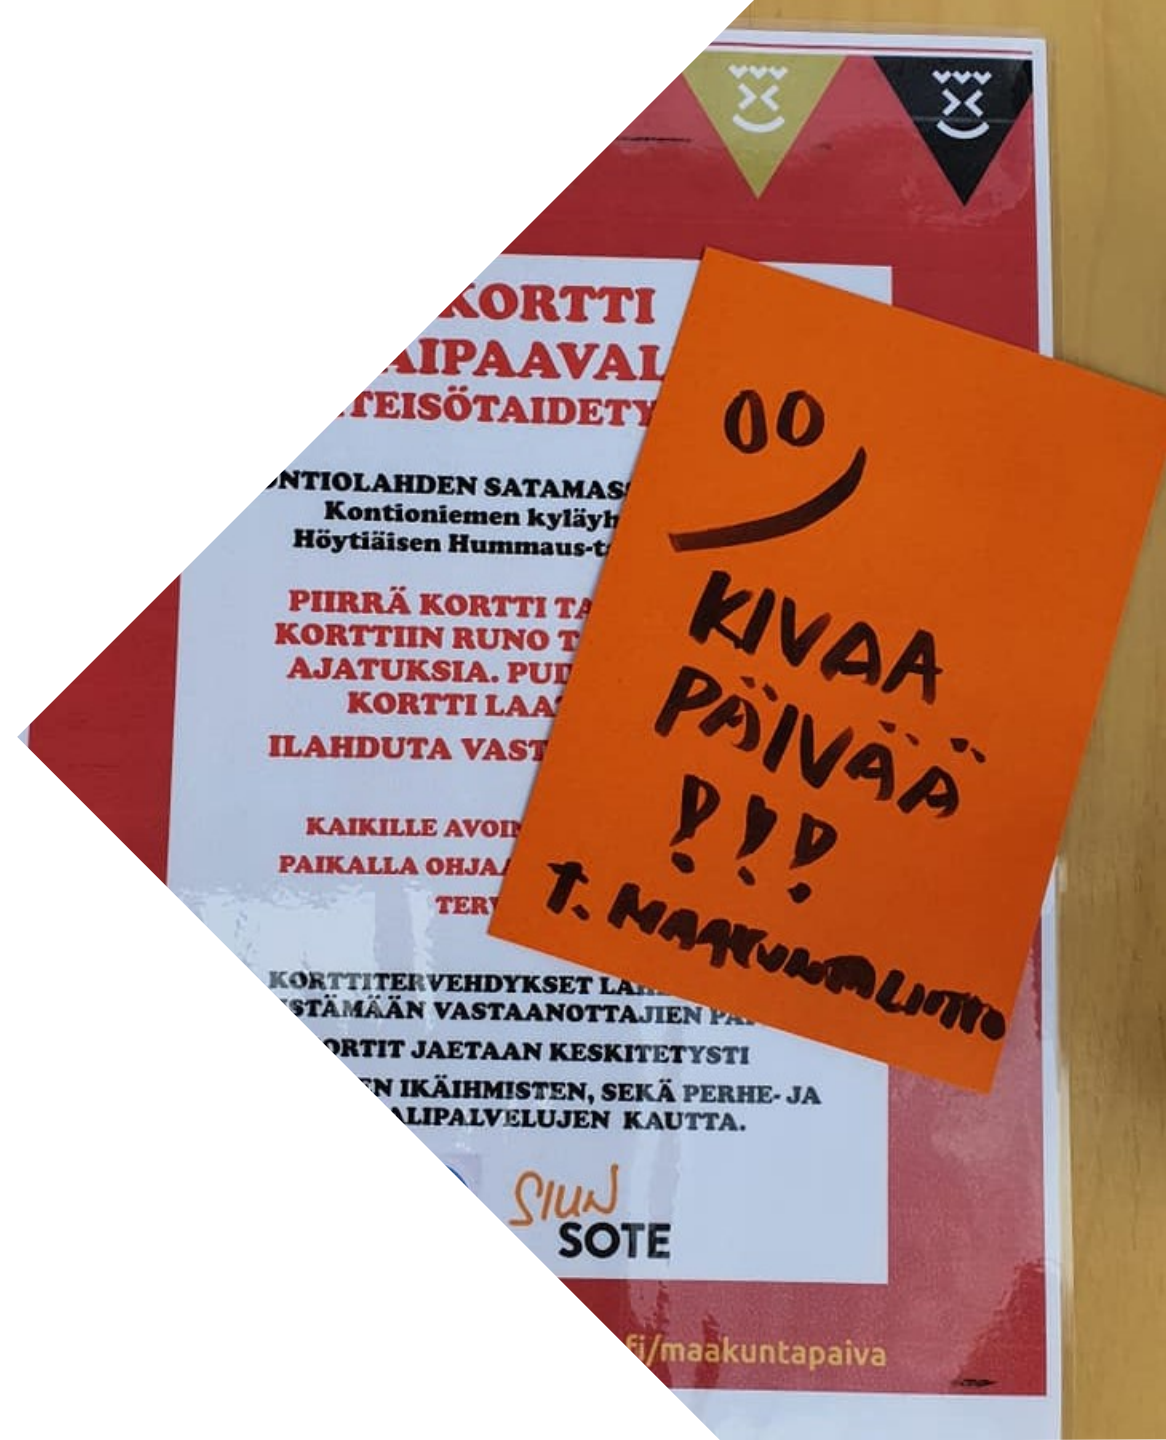 KORTTI
TEISÖTAIDETY
NTIOLAHDEN SATAMAS
Kontioniemen kyläyh
Höytiäisen Hummaus-t
PIIRRÄ KORTTI TA
KORTTIIN RUNO T
AJATUKSIA. PUD
KORTTI LAA
ILAHDUTA VAST
KAIKILLE AVOIN
PAIKALLA OHJAA
TERV
KORTTITERVEHDYKSET
STÄMÄÄN VASTAANOTTAJIEN
ORTIT JAETAAN KESKITETYSTI
EN IKÄIHMISTEN, SEKÄ PERHE- JA
ALIPALVELUJEN KAUTTA.
SIUN
SOTE
fi/maakuntapaiva
KIVAA
PÄIVÄÄ
!!!
T. MAAKUNTALIITTO